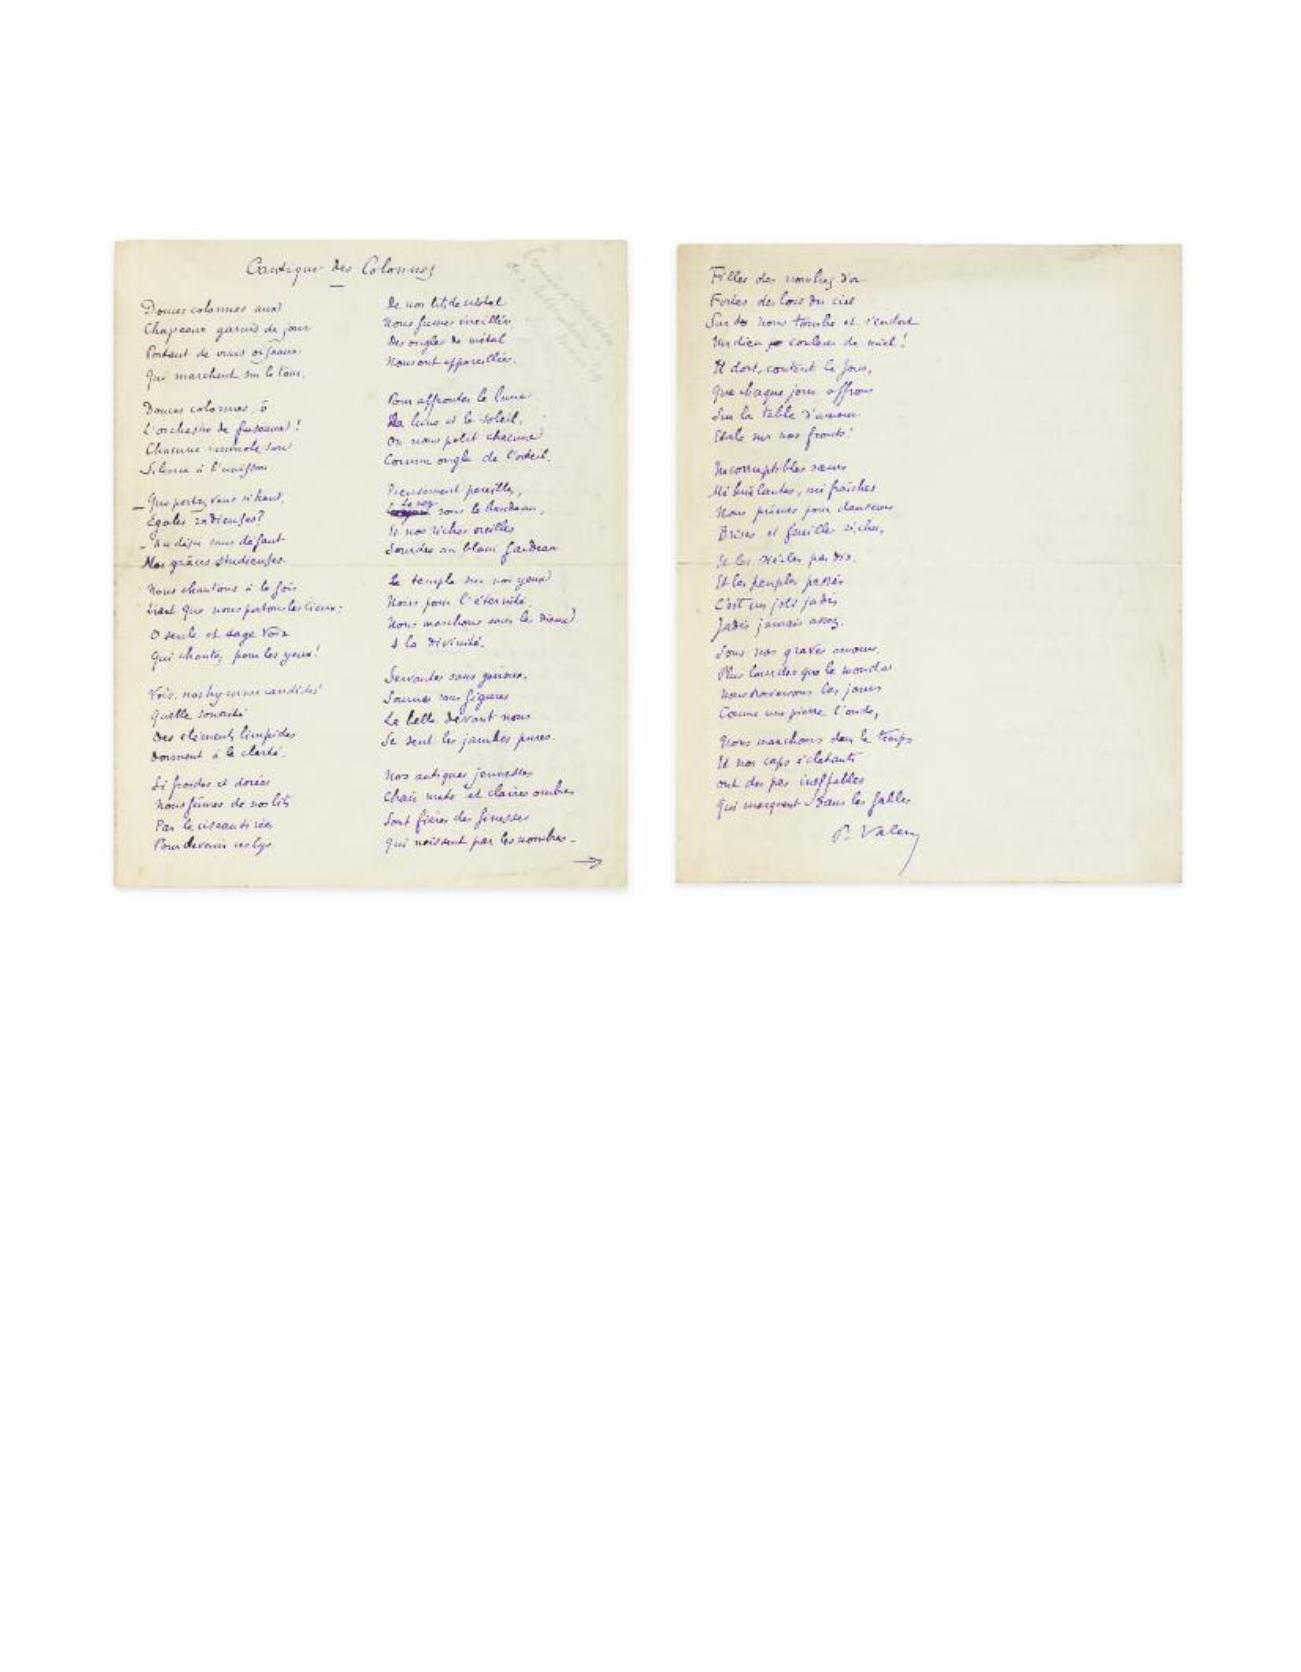 Cantique des Colonnes
Douces colonnes aux
Chapeaux garnis de jour
Portant de vrais oiseaux
Qui marchent sur le tour,
Douces colonnes, ô
L'orchestre de fuseaux !
Chacune immole son
Silence à l'unisson
— Que portez vous si haut,
Égales radieuses ?
— Au désir sans défaut
Nos grâces studieuses.
Nous chantons à la fois
Que nous portons les cieux :
O seule et sage voix
Qui chantes pour les yeux !
Vois, nos hymnes candides
Quelle sonorité
Des éléments limpides
Donnent à la clarté.
Si froides et dorées
Nous fûmes de nos lits
Par le ciseau tirées
Pour devenir ces lys
De nos lits de cristal
Nous fûmes éveillées
Des ongles de métal
Nous ont appareillées.
Pour affronter la lune
La lune et le soleil,
On nous polit chacune
Comme ongle de l'orteil.
Pieusement pareilles,
Le nez
sous le bandeau,
Et nos riches oreilles
Sourdes au blanc fardeau
Le temple sur nos yeux
Noirs pour l'éternité
Nous marchons sans les dieux
A la divinité.
Servantes sans genoux,
Sourires sans figures
La belle devant nous
Se sent les jambes pures.
Nos antiques jeunesses
Chair mate et claires ombres
Sont fières des finesses
Qui naissent par les nombres -
→
Filles des nombres d'or
Fortes des lois du ciel
Sur nous tombe et s'endort
Un dieu couleur de miel !
Il dort, content le Jour,
Que chaque jour offrons
Sur la table d'amour
Etale sur nos fronts !
Incorruptibles sœurs
Mi brûlantes, mi fraîches
Nous prîmes pour danseurs
Brises et feuilles sèches,
Et les siècles par dix,
Et les peuples passés
C'est un joli jadis
Jadis jamais assez.
Sous nos graves amours
Plus lourdes que le monde
Nous traversons les jours
Comme une pierre l'onde,
Nous marchons dans le temps
Et nos corps éclatants
ont des pas ineffables
Qui marquent dans les fables
P. Valery